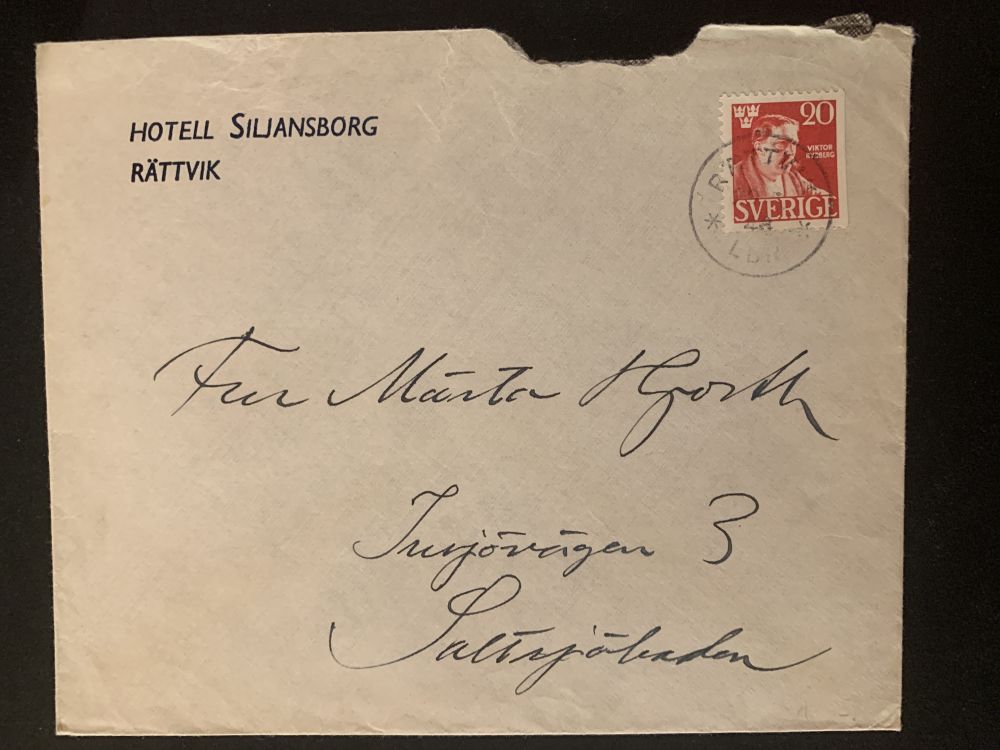 HOTELL SILJANSBORG
RÄTTVIK
20
VIKTOR
RYDBERG
SVERIGE
LBR
Fru Märta Hjorth
Insjövägen 3
Saltsjöbaden